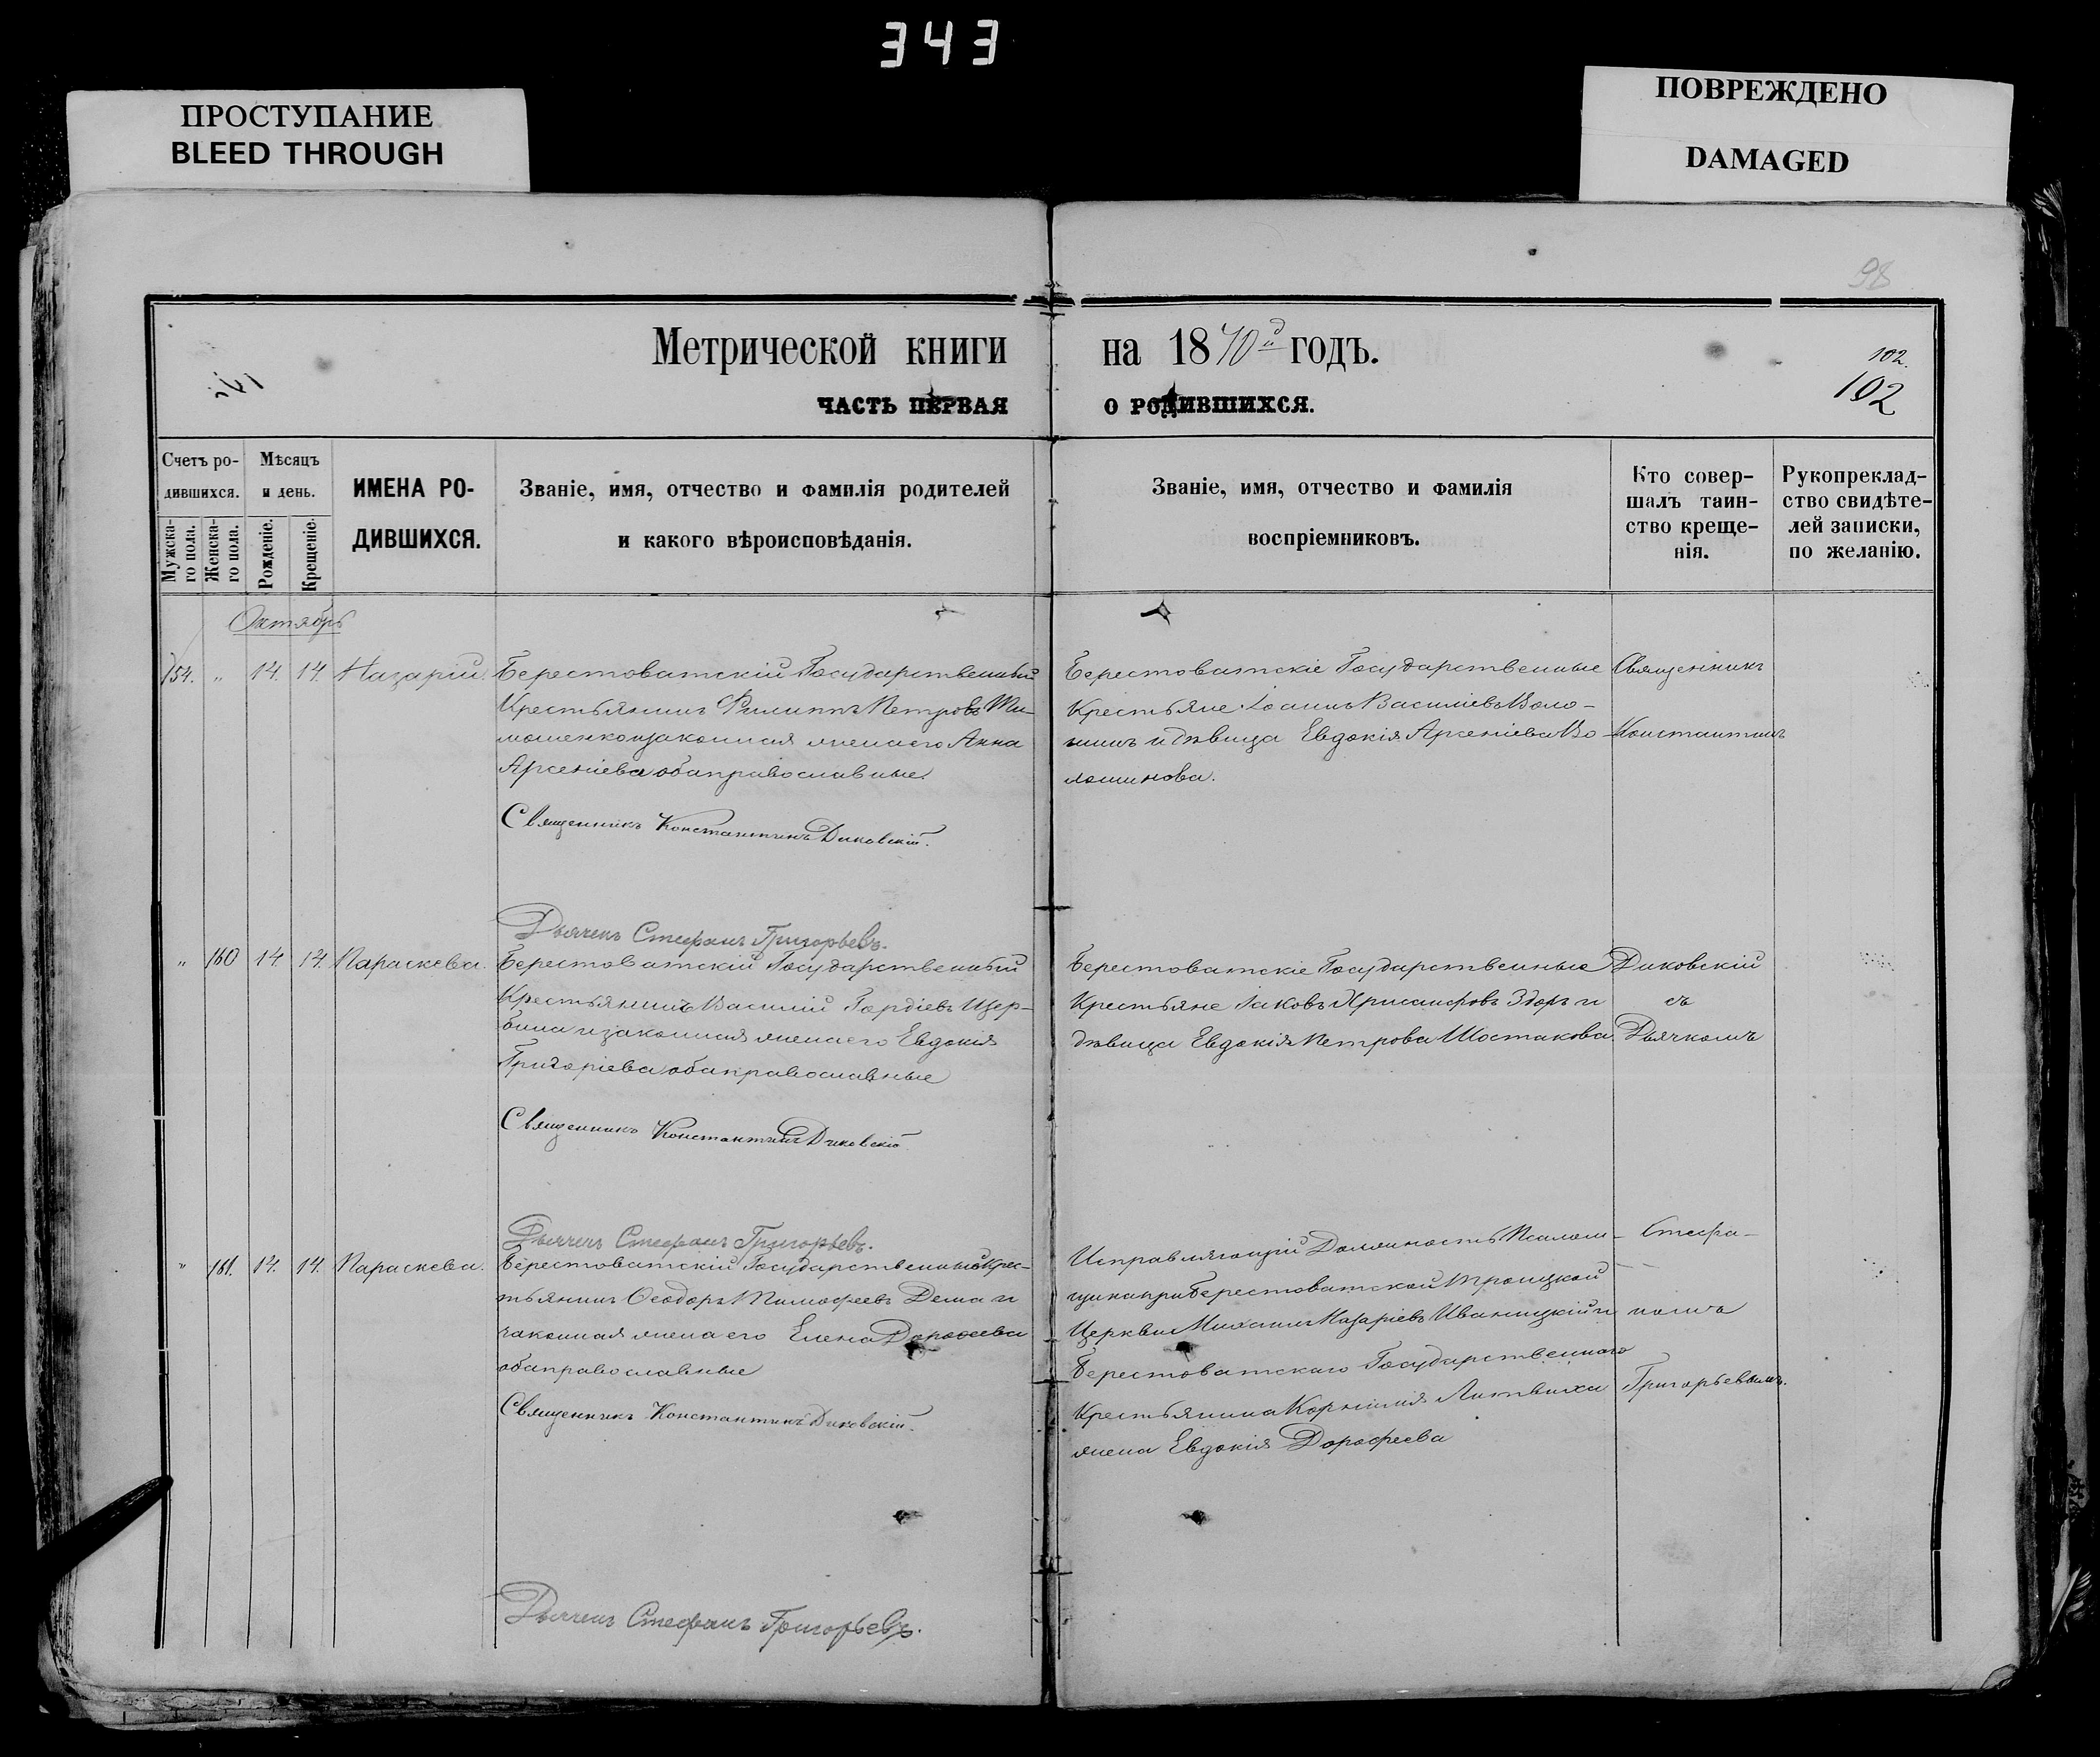 343
ПРОСТУПАНИЕ
BLEED THROUGH
ПОВРЕЖДЕНО
DAMAGED
98
Метрической книги на 1870й годъ.
102.
102
ЧАСТЬ ПЕРВАЯ О РОДИВШИХСЯ.
Счетъ родившихся.
Мужскаго пола.
Женскаго пола.
Мѣсяцъ и день.
Рожденіе.
Крещеніе.
ИМЕНА РОДИВШИХСЯ.
Званіе, имя, отчество и фамилія родителей
и какого вѣроисповѣданія.
Званіе, имя, отчество и фамилія
воспріемниковъ.
Кто совер-
шалъ таин-
ство креще-
нія.
Рукопреклад-
ство свидѣте-
лей записки,
по желанію.
Октябрь
154. " 14. 14. Назарій.
Берестоватскій Государственный
Крестьянинъ Филиппъ Петровъ Ти-
мошенко и законная жена его Анна
Арсеніева оба православные
Священникъ Константинъ Диковскій.
Дьячекъ Стефанъ Григорьевъ.
Берестоватскіе Государственные
Крестьяне Іоаннъ Васильевъ Воло-
шинъ и дѣвица Евдокія Арсеніева Во-
лошинова.
Священникъ
Константинъ
" 160 14. 14. Параскева.
Берестоватскій Государственный
Крестьянинъ Василій Гордіевъ Щер-
бина и законная жена его Евдокія
Григоріева оба православные
Священникъ Константинъ Диковскій
Дьячекъ Стефанъ Григорьевъ.
Берестоватскіе Государственные
Крестьяне Іаковъ Хрисанфовъ Здоръ и
дѣвица Евдокія Петрова Шостакова.
Диковскій
съ
Дьячкомъ
" 161. 14. 14. Параскева.
Берестоватскій Государственный Крес-
тьянинъ Ѳеодоръ Тимофеевъ Дема и
законная жена его Елена Дорофеева
оба православные
Священникъ Константинъ Диковскій.
Дьячекъ Стефанъ Григорьевъ.
Исправляющій Должность Псалом-
щика при Берестоватской Троицкой
Церкви Михаилъ Назаріевъ Иваницкій и
Берестоватскаго Государственнаго
Крестьянина Корнилія Литвина
жена Евдокія Дорофеева
Стефа-
номъ
Григорьевымъ.